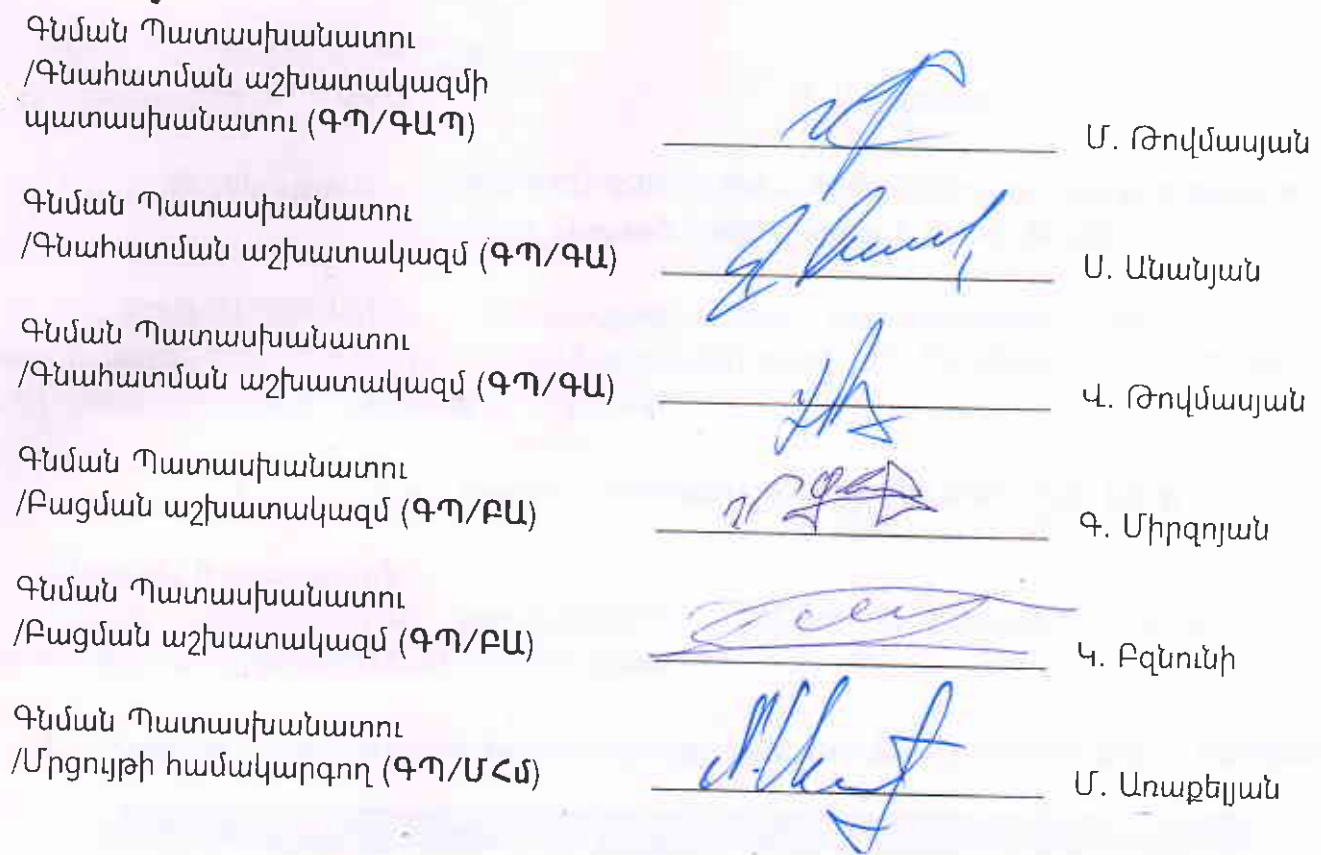 Գնման Պատասխանատու
/Գնահատման աշխատակազմի
պատասխանատու (ԳՊ/ԳԱՊ)
Մ. Թովմասյան
Գնման Պատասխանատու
/Գնահատման աշխատակազմ (ԳՊ/ԳԱ)
Ս. Անանյան
Գնման Պատասխանատու
/Գնահատման աշխատակազմ (ԳՊ/ԳԱ)
Վ. Թովմասյան
Գնման Պատասխանատու
/Բացման աշխատակազմ (ԳՊ/ԲԱ)
Գ. Միրզոյան
Գնման Պատասխանատու
/Բացման աշխատակազմ (ԳՊ/ԲԱ)
Կ. Բզնունի
Գնման Պատասխանատու
/Մրցույթի համակարգող (ԳՊ/ՄՀմ)
Մ. Առաքելյան